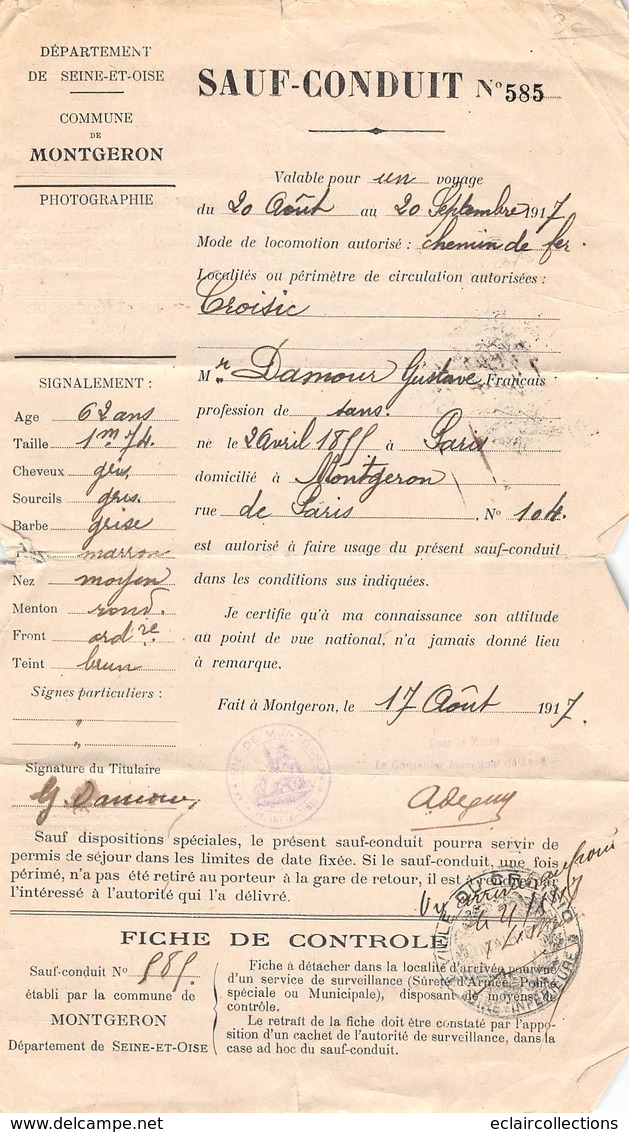 DÉPARTEMENT
DE SEINE-ET-OISE
COMMUNE
DE
MONTGERON
PHOTOGRAPHIE
SAUF-CONDUIT N° 585
Valable pour un voyage
du 20 Août au 20 Septembre 1917
Mode de locomotion autorisé : chemin de fer
Localités ou périmètre de circulation autorisées :
Croisic
Mr Damour Gustave Français
profession de sans.
né le 2 avril 1855 à Paris
domicilié à Montgeron
rue de Paris, N° 104.
est autorisé à faire usage du présent sauf-conduit
dans les conditions sus indiquées.
Je certifie qu'à ma connaissance son attitude
au point de vue national, n'a jamais donné lieu
à remarque.
Fait à Montgeron, le 17 Août 1917.
SIGNALEMENT :
Age 62 ans
Taille 1m 74
Cheveux gris
Sourcils gris.
Barbe grise
marron
Nez moyen
Menton rond.
Front ordre
Teint brun
Signes particuliers :
"
"
Signature du Titulaire
G. Damour
MAIRIE DE MONTGERON
Pour le Maire
Le Conseiller Municipal délégué
Sauf dispositions spéciales, le présent sauf-conduit pourra servir de
permis de séjour dans les limites de date fixée. Si le sauf-conduit, une fois
périmé, n'a pas été retiré au porteur à la gare de retour, il est à rendre par
l'intéressé à l'autorité qui l'a délivré.
Vu
VILLE DU CROISIC
INFÉRIEURE
FICHE DE CONTROLE
Sauf-conduit N° 585.
établi par la commune de
MONTGERON
Département de SEINE-ET-OISE
Fiche à détacher dans la localité d'arrivée pourvue
d'un service de surveillance (Sûreté d'Armée, Police
spéciale ou Municipale), disposant de moyens de
contrôle.
Le retrait de la fiche doit être constaté par l'appo-
sition d'un cachet de l'autorité de surveillance, dans la
case ad hoc du sauf-conduit.
eclaircollections